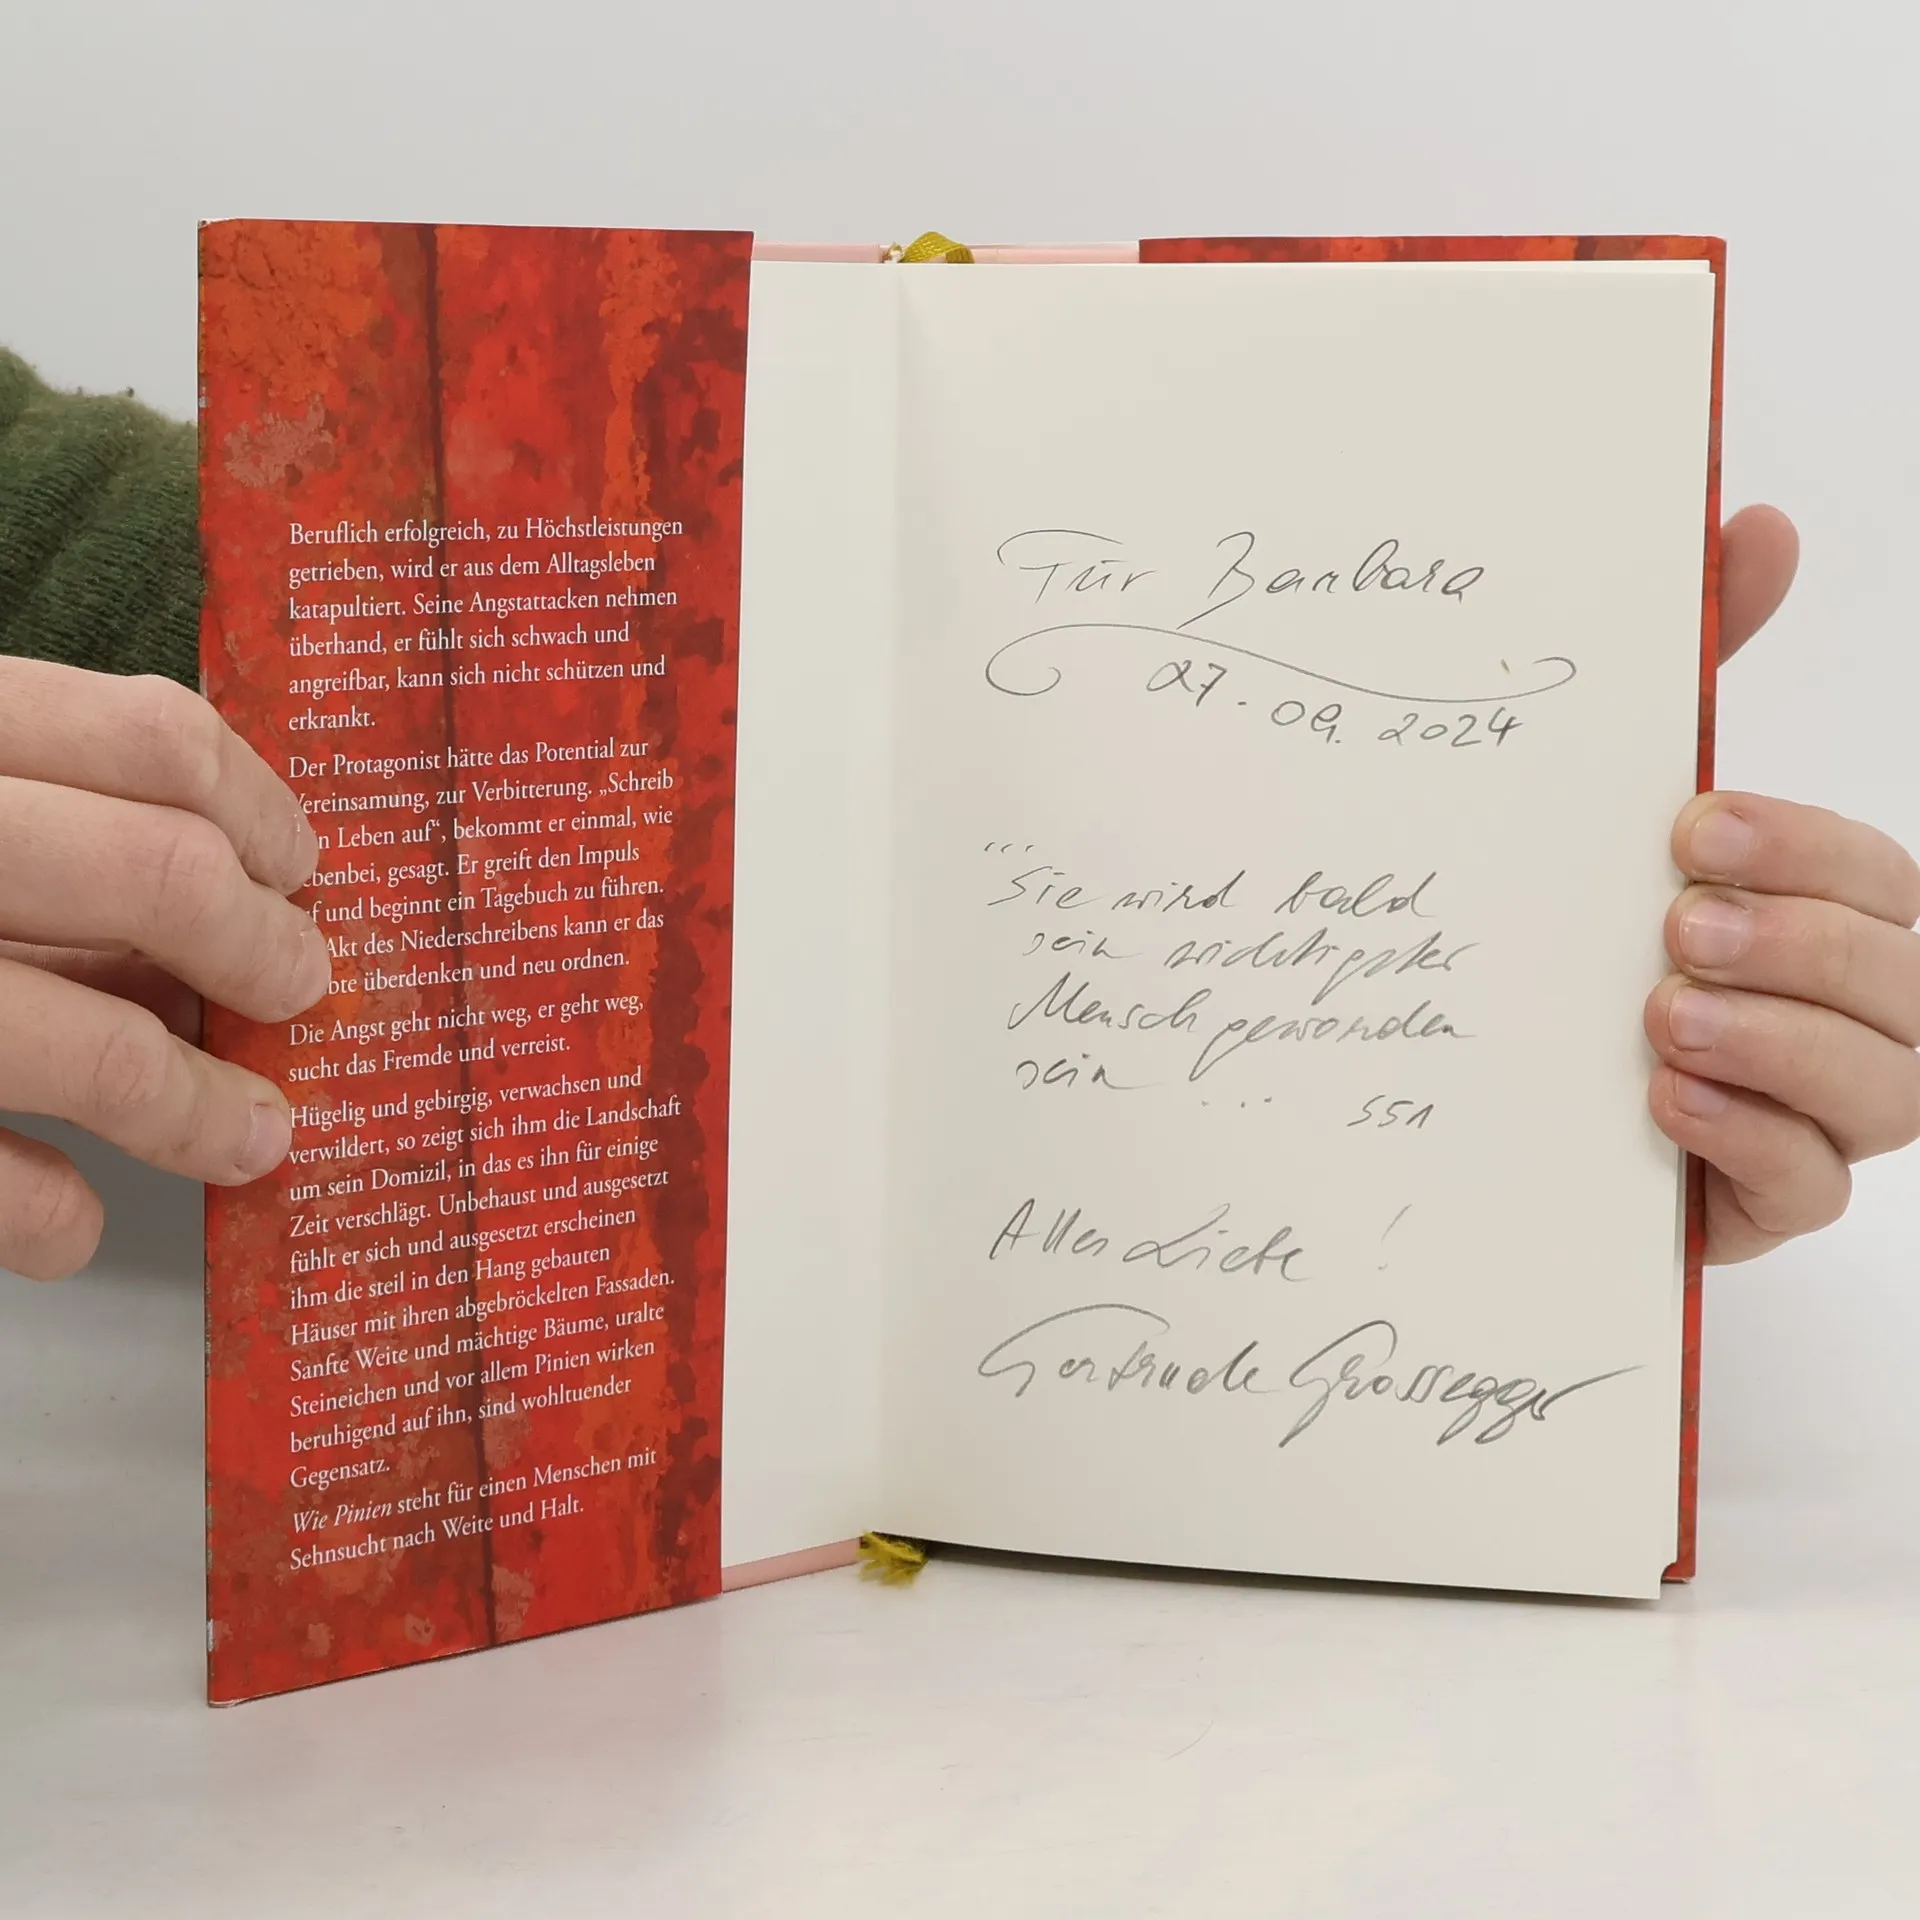 Beruflich erfolgreich, zu Höchstleistungen
getrieben, wird er aus dem Alltagsleben
katapultiert. Seine Angstattacken nehmen
überhand, er fühlt sich schwach und
angreifbar, kann sich nicht schützen und
erkrankt.
Der Protagonist hätte das Potential zur
Vereinsamung, zur Verbitterung. „Schreib
n Leben auf“, bekommt er einmal, wie
ebenbei, gesagt. Er greift den Impuls
f und beginnt ein Tagebuch zu führen.
Akt des Niederschreibens kann er das
bte überdenken und neu ordnen.
Die Angst geht nicht weg, er geht weg,
sucht das Fremde und verreist.
Hügelig und gebirgig, verwachsen und
verwildert, so zeigt sich ihm die Landschaft
um sein Domizil, in das es ihn für einige
Zeit verschlägt. Unbehaust und ausgesetzt
fühlt er sich und ausgesetzt erscheinen
ihm die steil in den Hang gebauten
Häuser mit ihren abgebröckelten Fassaden.
Sanfte Weite und mächtige Bäume, uralte
Steineichen und vor allem Pinien wirken
beruhigend auf ihn, sind wohltuender
Gegensatz.
Wie Pinien steht für einen Menschen mit
Sehnsucht nach Weite und Halt.
Für Barbara
27.09.2024
...
Sie wird bald
sein wichtigster
Mensch geworden
sein ... S51
Alles Liebe !
Gertrude Grossegger